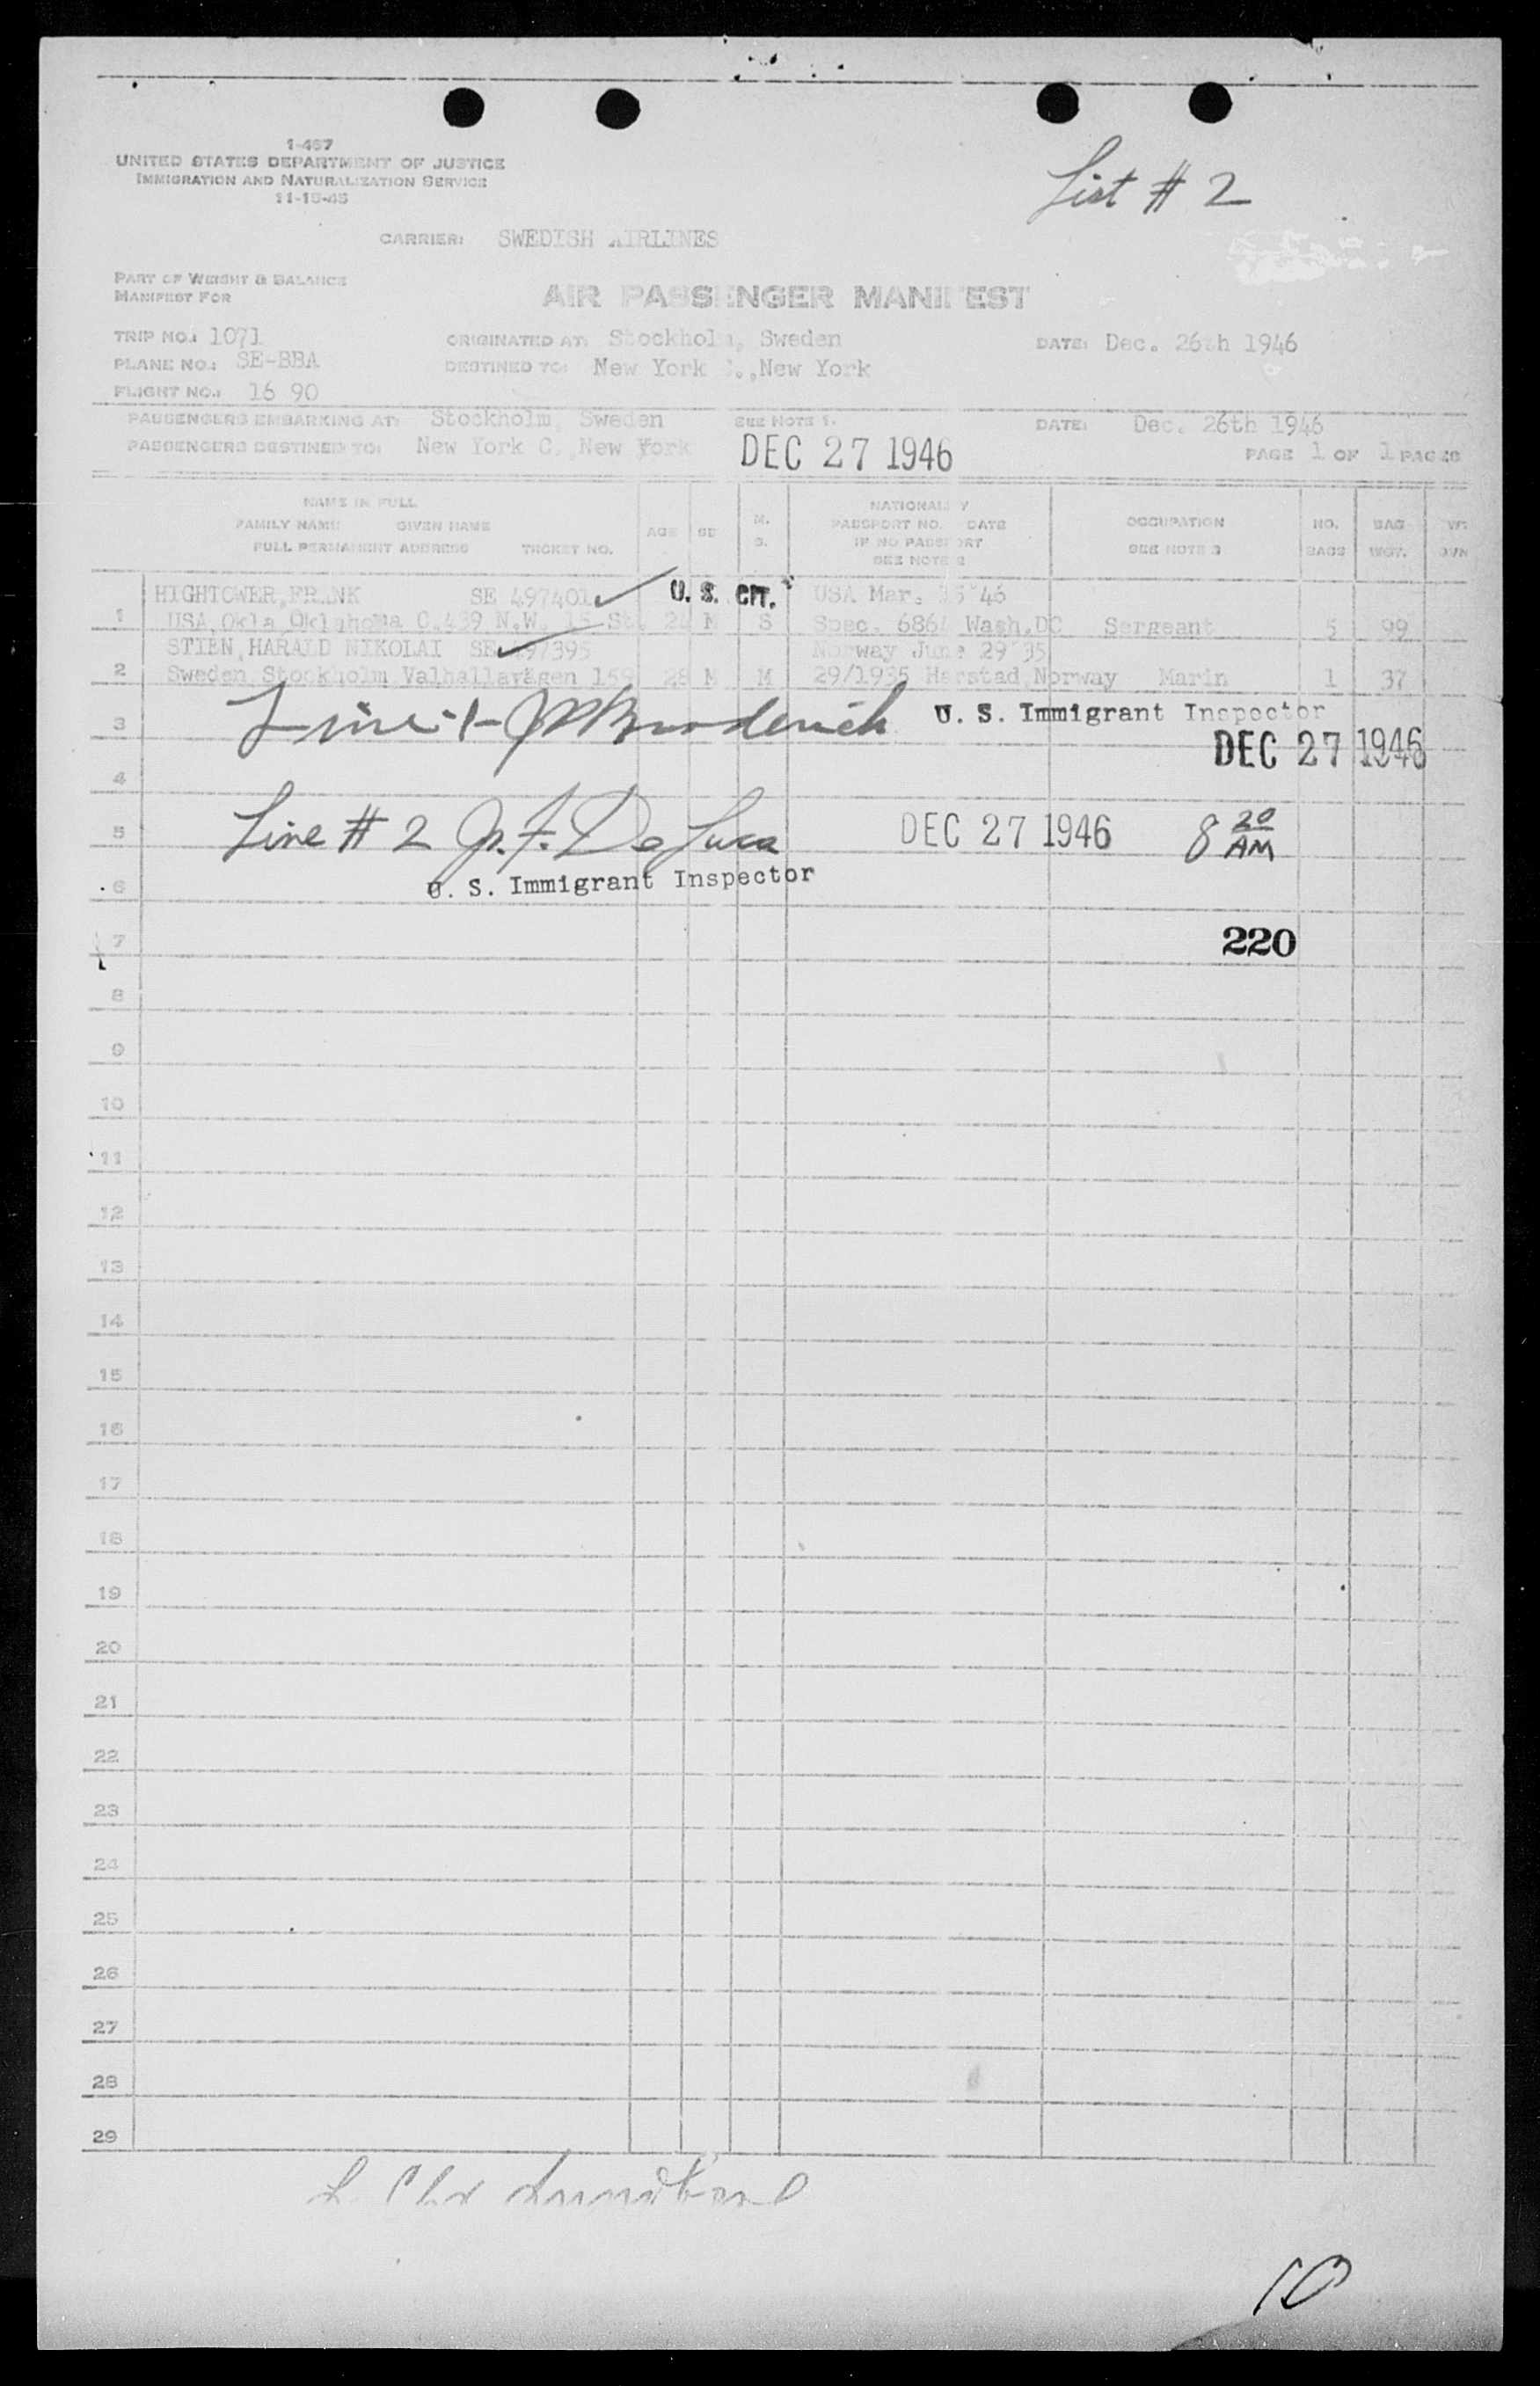 1-467
UNITED STATES DEPARTMENT OF JUSTICE
IMMIGRATION AND NATURALIZATION SERVICE
11-15-45
List # 2
CARRIER: SWEDISH AIRLINES
PART OF WEIGHT & BALANCE
MANIFEST FOR
AIR PASSENGER MANIFEST
TRIP NO.: 1071 ORIGINATED AT: Stockholm, Sweden DATE: Dec. 26th 1946
PLANE NO.: SE-BBA DESTINED TO: New York C.,New York
FLIGHT NO.: 16 90
PASSENGERS EMBARKING AT: Stockholm, Sweden SEE NOTE 1. DATE: Dec. 26th 1946
PASSENGERS DESTINED TO: New York C., New York DEC 27 1946 PAGE 1 OF 1 PAGES
NAME IN FULL NATIONALITY
FAMILY NAME GIVEN NAME AGE SE M. PASSPORT NO. DATE OCCUPATION NO. BAG
FULL PERMANENT ADDRESS TICKET NO. S. IF NO PASSPORT SEE NOTE 3 BAGS WGT.
SEE NOTE 2
HIGHTOWER,FRANK SE 497401 U. S. CIT. USA Mar. 46
1 USA,Okla,Oklahoma C.439 N.W. 15 St. M S Spec. Wash.DC Sergeant 5 99
STIEN,HARALD NIKOLAI SE 497395 Norway June 29 35
2 Sweden,Stockholm Valhallavägen 159 28 M M 29/1935 Harstad,Norway Marin 1 37
3 Line 1- Broderick U. S. Immigrant Inspector
DEC 27 1946
4
5 Line # 2 J. F. De Luca DEC 27 1946 8 20 AM
6 U. S. Immigrant Inspector
7 220
8
9
10
11
12
13
14
15
16
17
18
19
20
21
22
23
24
25
26
27
28
29
10